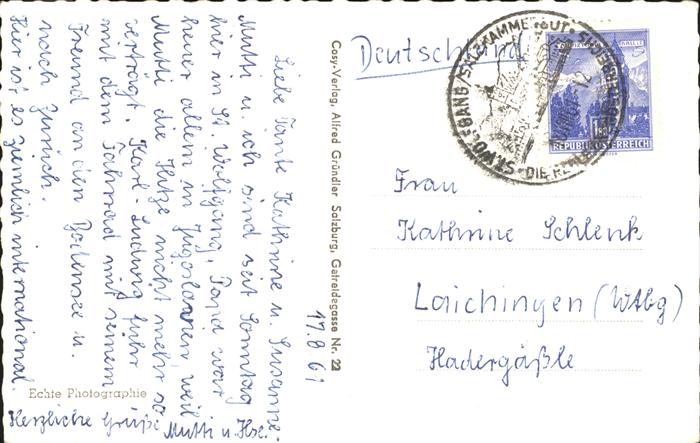 17.8.61
Liebe Tante Kathrine u. Susanne.
Mutti u. ich sind seit Sonntag
hier in St. Wolfgang, Papa war
heuer allein in Jugoslawien, weil
Mutti die Hitze nicht mehr so
verträgt. Karl-Ludwig fuhr
mit dem Fahrrad mit seinem
Freund an den Bodensee u.
nach Zürich.
Hier ist es ziemlich international.
Herzliche Grüße Mutti u. Ilse.
Echte Photographie
Cosy-Verlag, Alfred Gründler Salzburg, Getreidegasse Nr. 22
Deutschland
ST. WOLFGANG/SALZKAMMERGUT
REPUBLIK ÖSTERREICH
Frau
Kathrine Schlenk
Laichingen (Wttbg)
Hadergäßle